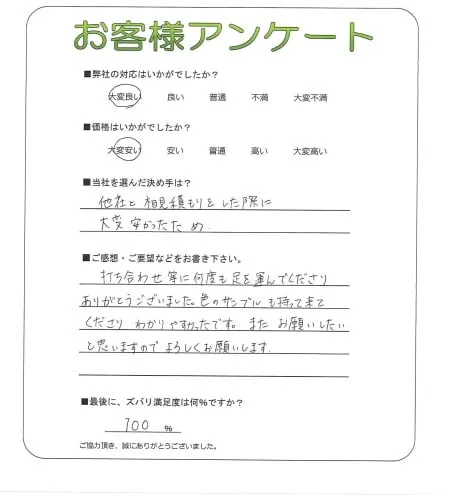 お客様アンケート
■弊社の対応はいかがでしたか?
大変良い 良い 普通 不満 大変不満
■価格はいかがでしたか?
大変安い 安い 普通 高い 大変高い
■当社を選んだ決め手は?
他社と相見積もりをした際に
大変安かったため.
■ご感想・ご要望などをお書き下さい。
打ち合わせ等に何度も足を運んでくださり
ありがとうございました。色のサンプルも持って来て
くださり わかりやすかったです。また お願いしたい
と思いますので よろしくお願いします.
■最後に、ズバリ満足度は何%ですか?
100 %
ご協力頂き、誠にありがとうございました。